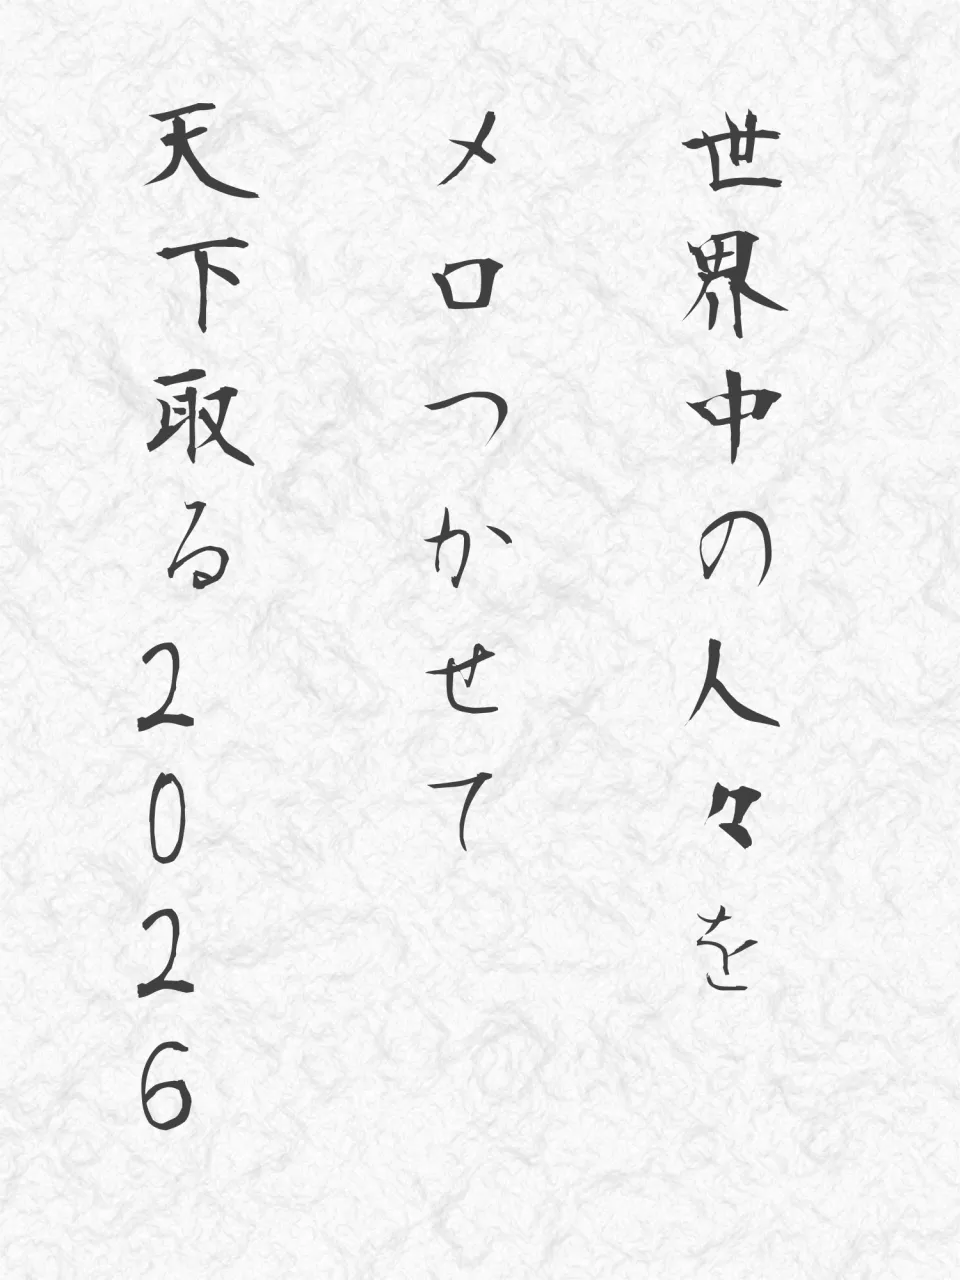 世界中の人々を
メロつかせて
天下取る2026